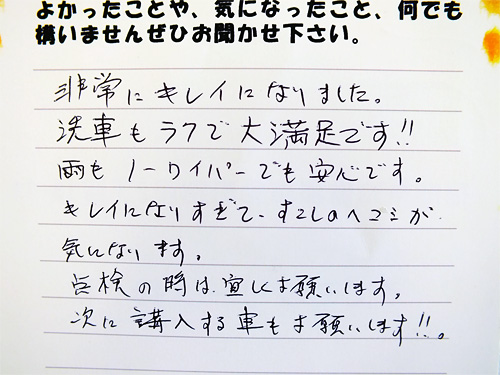 よかったことや、気になったこと、何でも
構いませんぜひお聞かせ下さい。
非常にキレイになりました。
洗車もラクで大満足です!!
雨もノーワイパーでも安心です。
キレイになりすぎて、すこしのヘコミが
気になります。
点検の時は宜しくお願いします。
次に講入する車もお願いします!!。